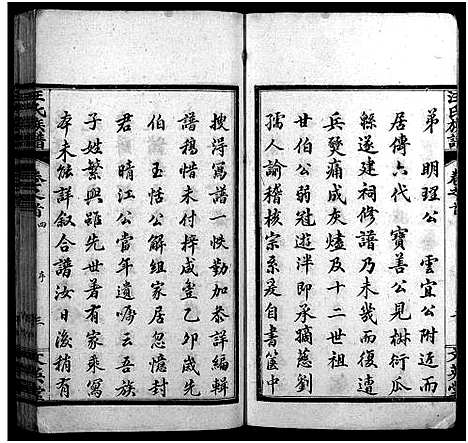 弟　明瑆公　雲宜公附近而
居傳六代　寶善公見椒衍瓜
緜遂建祠修譜乃未幾而復遭
兵燹痛成灰燼及十二世祖
世伯公弱冠遊泮即承嫡慈劉
孺人諭稽核宗系爰自書篋中
搜得寫譜一帙勤加叅詳編輯
譜稿惜未付梓咸豐乙卯歲先
伯　玉恬公解組家居忽憶封
君　晴江公當年遺囑云吾族
子姓繁興雖先世著有家乘寫
本未能詳叙合譜汝日後稍有
汪氏族譜
卷之首
四
序
三
文英堂